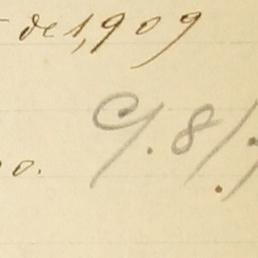 de 1,909
o. C/. 8/.